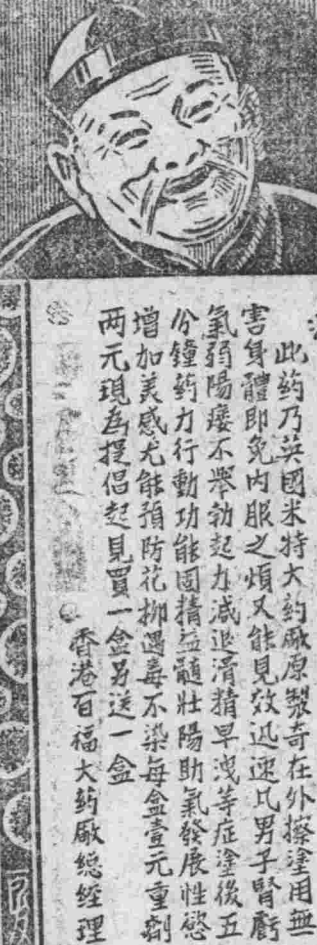 此药乃英國米特大药廠原製奇在外擦塗用無
害身體即免内服之煩又能見效迅速凡男子腎虧
氣弱陽痿不舉勃起力減退滑精早洩等症塗後五
分鐘药力行動功能固精益髓壯陽助氣發展性慾
增加美感尤能預防花柳遇毒不染每盒壹元重劑
两元現為提倡起見買一盒另送一盒
香港百福大药廠總經理